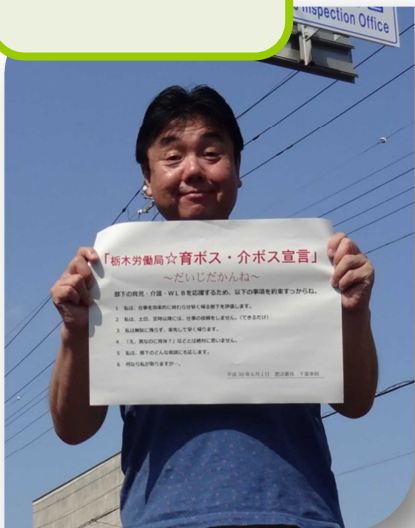 Inspection Office
「栃木労働局☆育ボス・介ボス宣言」
～だいじだかんね～
部下の育児・介護・WLBを応援するため、以下の事項を約束すっからね。
1 私は、仕事を効率的に終わらせ早く帰る部下を評価します。
2 私は、土日、定時以降には、仕事の依頼をしません。（できるだけ）
3 私は無駄に残らず、率先して早く帰ります。
4 「え、男なのに育休？」などとは絶対に思いません。
5 私は、部下のどんな相談にも応じます。
6 何なら私が取りますが…。
平成30年6月1日